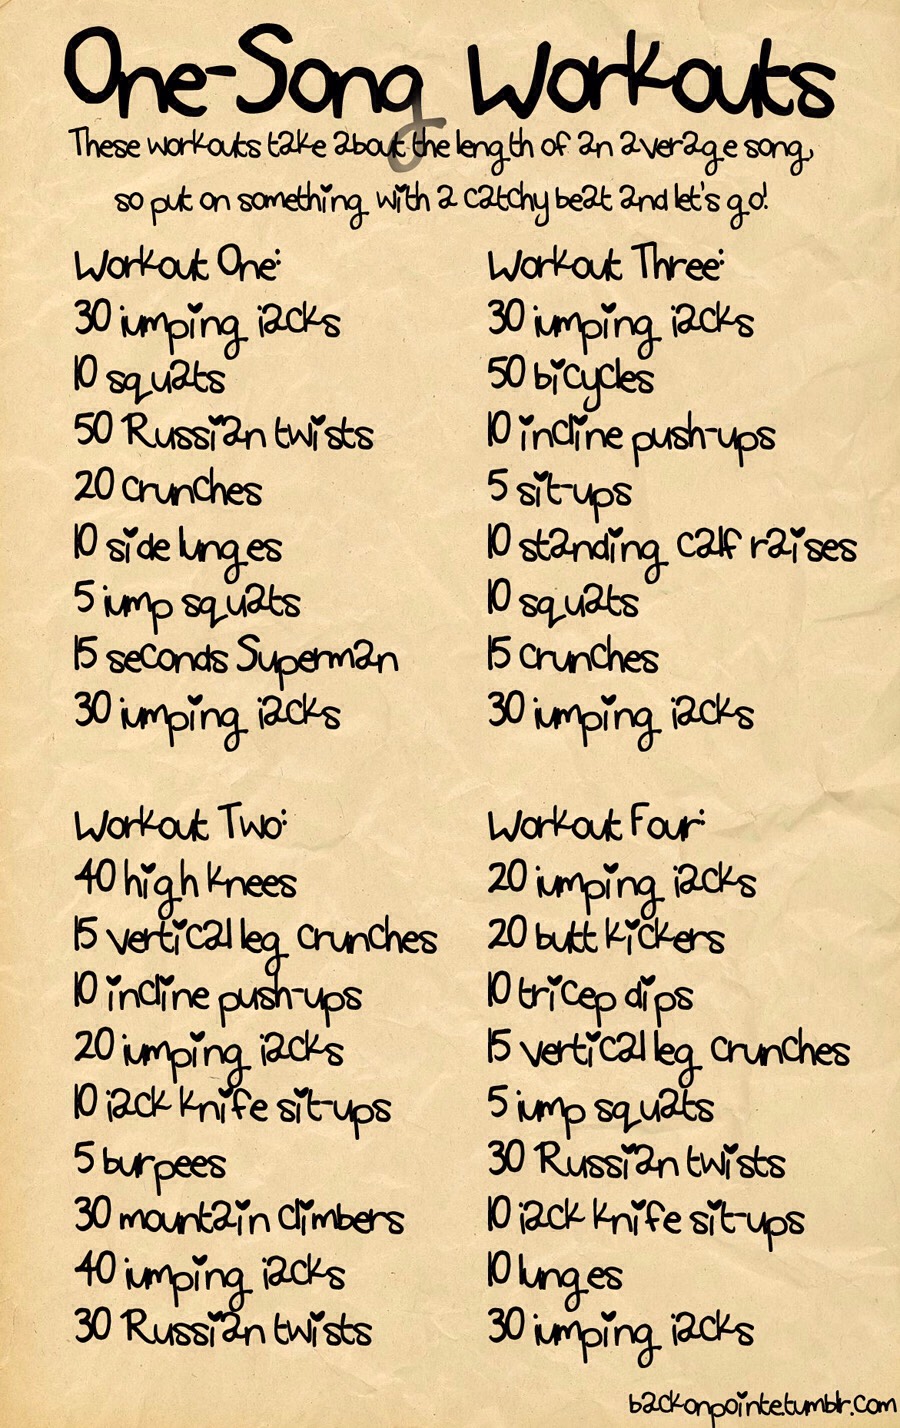 One-Song Workouts
These workouts take about the length of an average song,
so put on something with a catchy beat and let's go!
Workout One:
30 jumping jacks
10 squats
50 Russian twists
20 crunches
10 side lunges
5 jump squats
15 seconds Superman
30 jumping jacks
Workout Two:
40 high knees
15 vertical leg crunches
10 incline push-ups
20 jumping jacks
10 jack knife sit-ups
5 burpees
30 mountain climbers
40 jumping jacks
30 Russian twists
Workout Three:
30 jumping jacks
50 bicycles
10 incline push-ups
5 sit-ups
10 standing calf raises
10 squats
15 crunches
30 jumping jacks
Workout Four:
20 jumping jacks
20 butt kickers
10 tricep dips
15 vertical leg crunches
5 jump squats
30 Russian twists
10 jack knife sit-ups
10 lunges
30 jumping jacks
backonpointe.tumblr.com